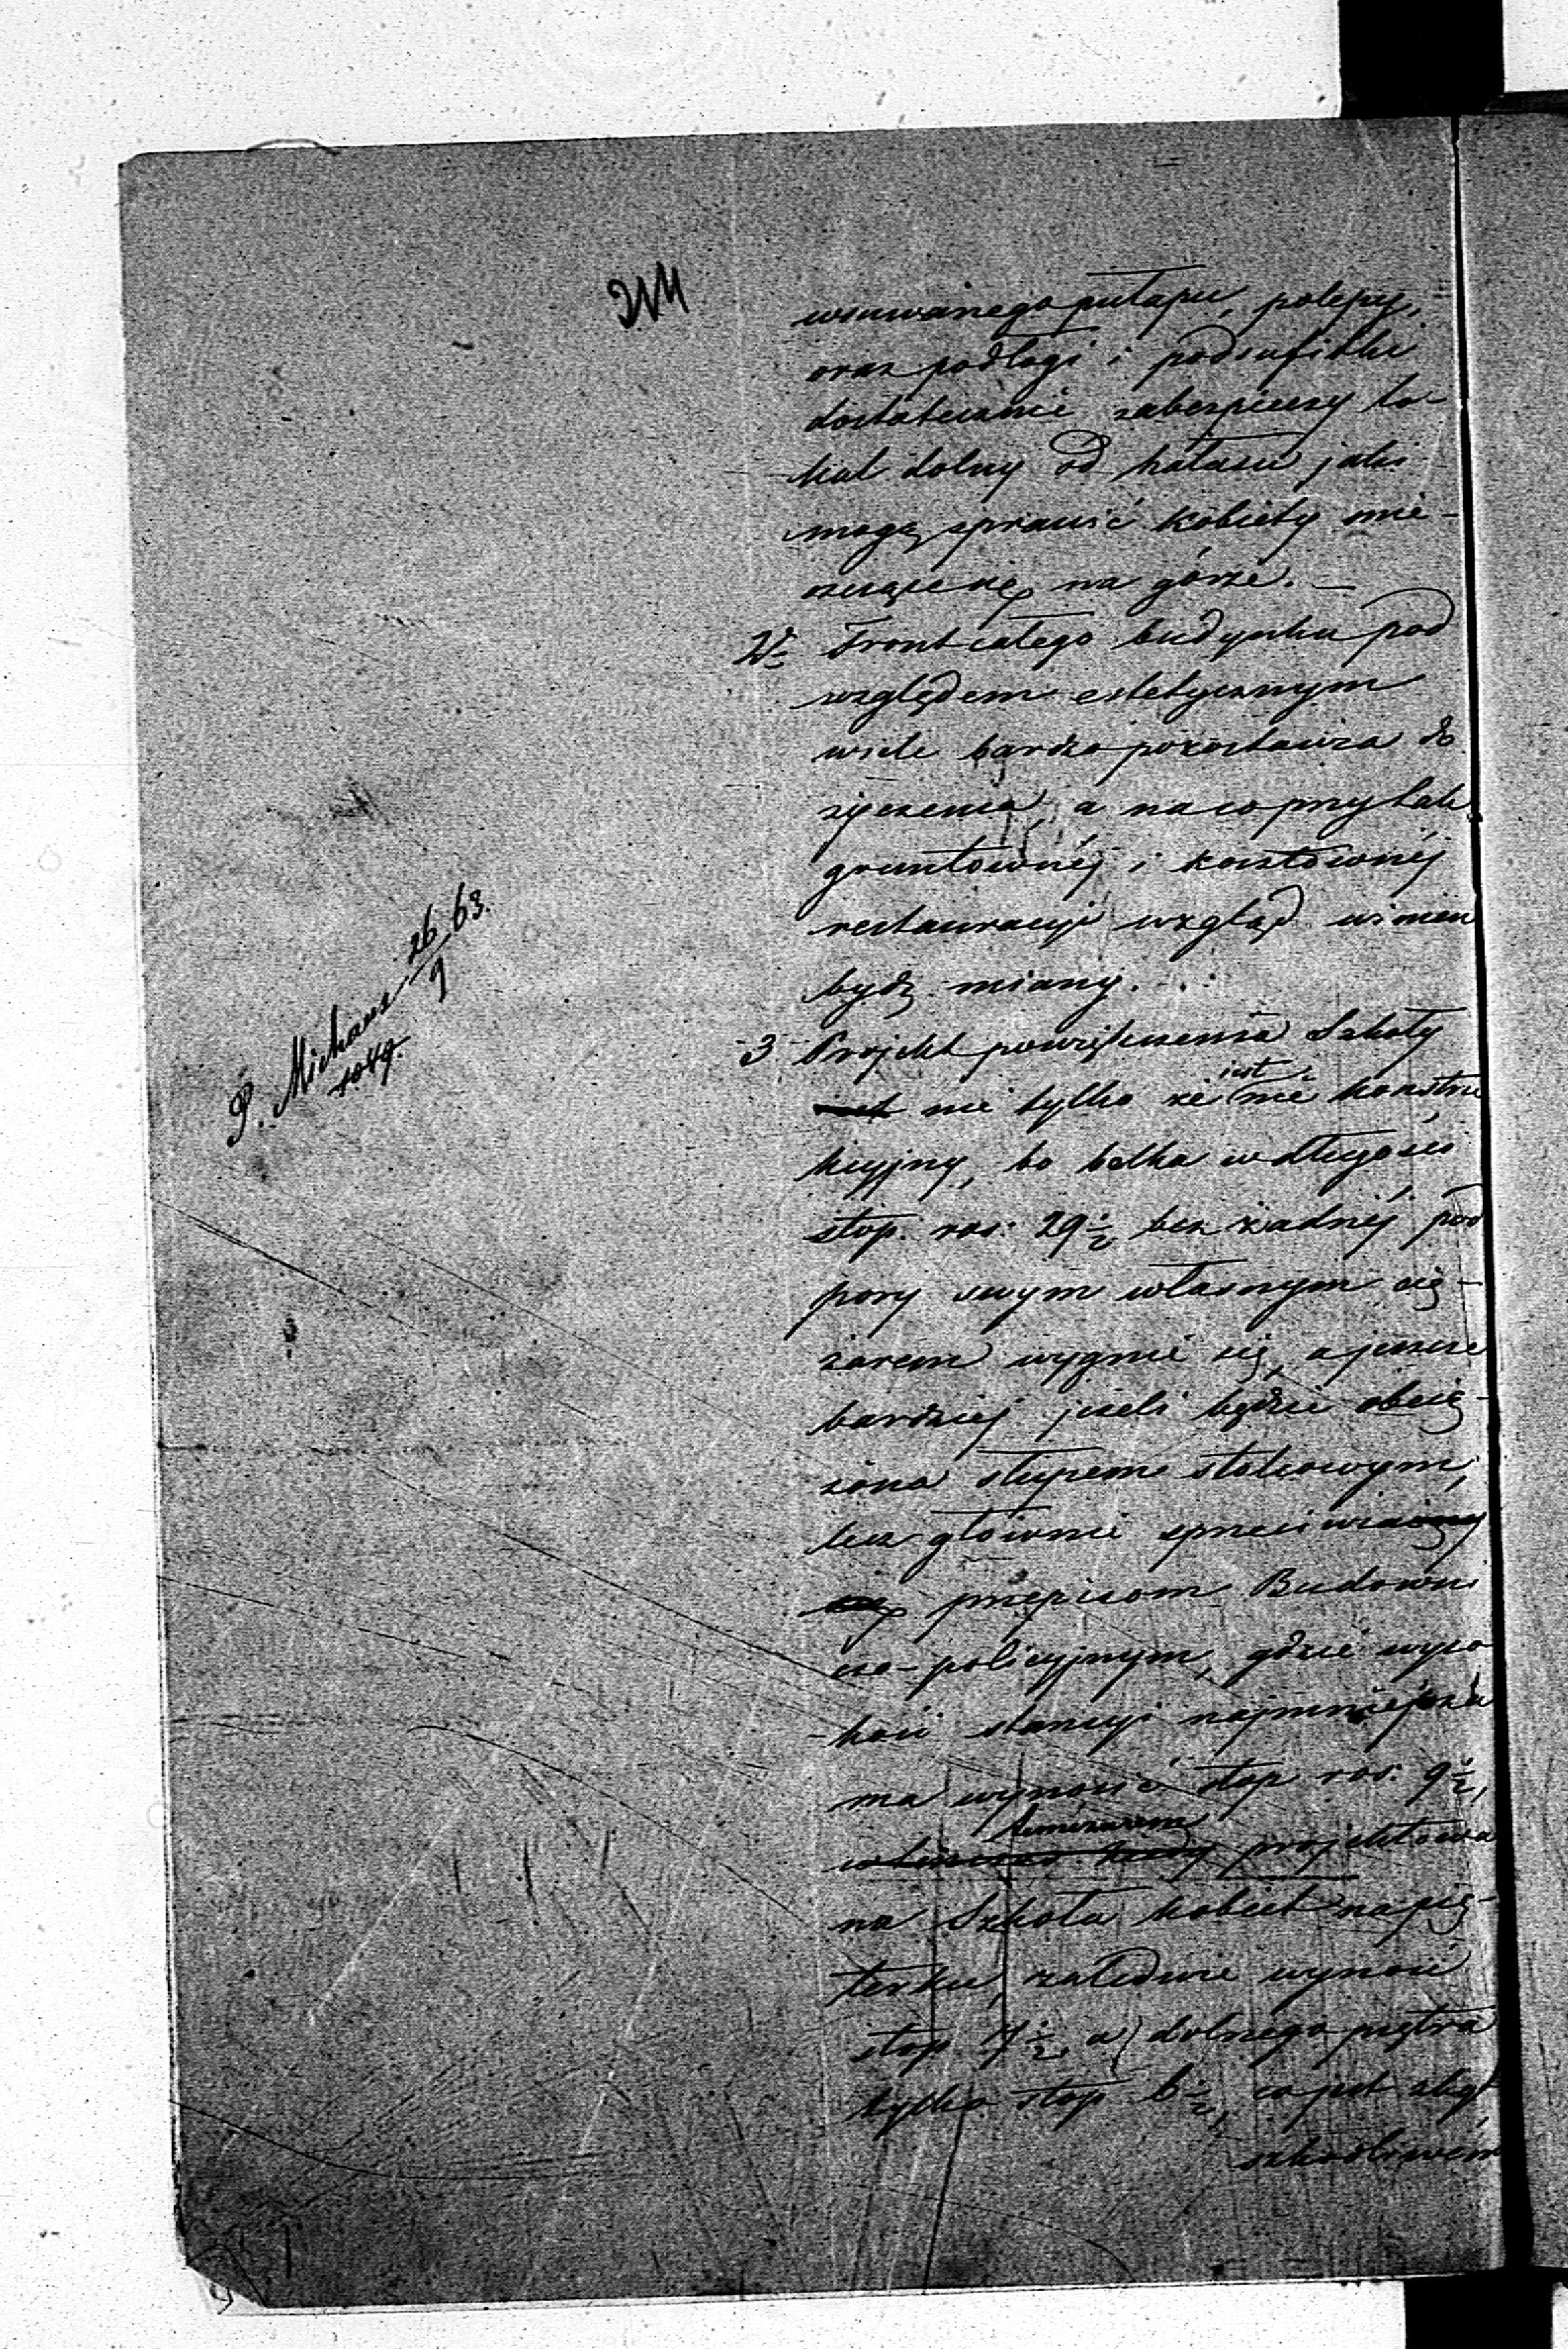 214
wsuwanego pułapu, polepy,
oraz podłogi i podsufitki
dostatecznie zabezpieczy lo-
kal dolny od hałasu jaki
mogą sprawić kobiety mie-
szczące się na górze. —
2. Front całego budynku pod
względem estetycznym
wiele bardzo pozostawia do
życzenia, a na co przy tak
gruntownéj i kosztownéj
restauracyi wzgląd winien
bydź miany.
3 Projekt powiększenia Szkoły
jest
nie tylko że nie konstru
kcyjny, bo belka w długości
stop. ros: 29½ bez żadnéj pod
pory swym własnym cię-
żarem wygnie się, a jeszcze
bardziej jeżeli będzie obcią-
żona słupem stolcowym,
lecz głównie sprzeciwia
się przepisom Budowni
czo-policyjnym, gdzie wyso
kość stancyi najmniejsza
ma wynosić stop ros: 9½,
projektowa
na Szkoła kobiet na pię-
terku, zaledwie wynosi
stop 7½ a dolnego piętra
tylko stop 6½, co jest zbyt
szkodliwém
P. Michaux 26/9 63.